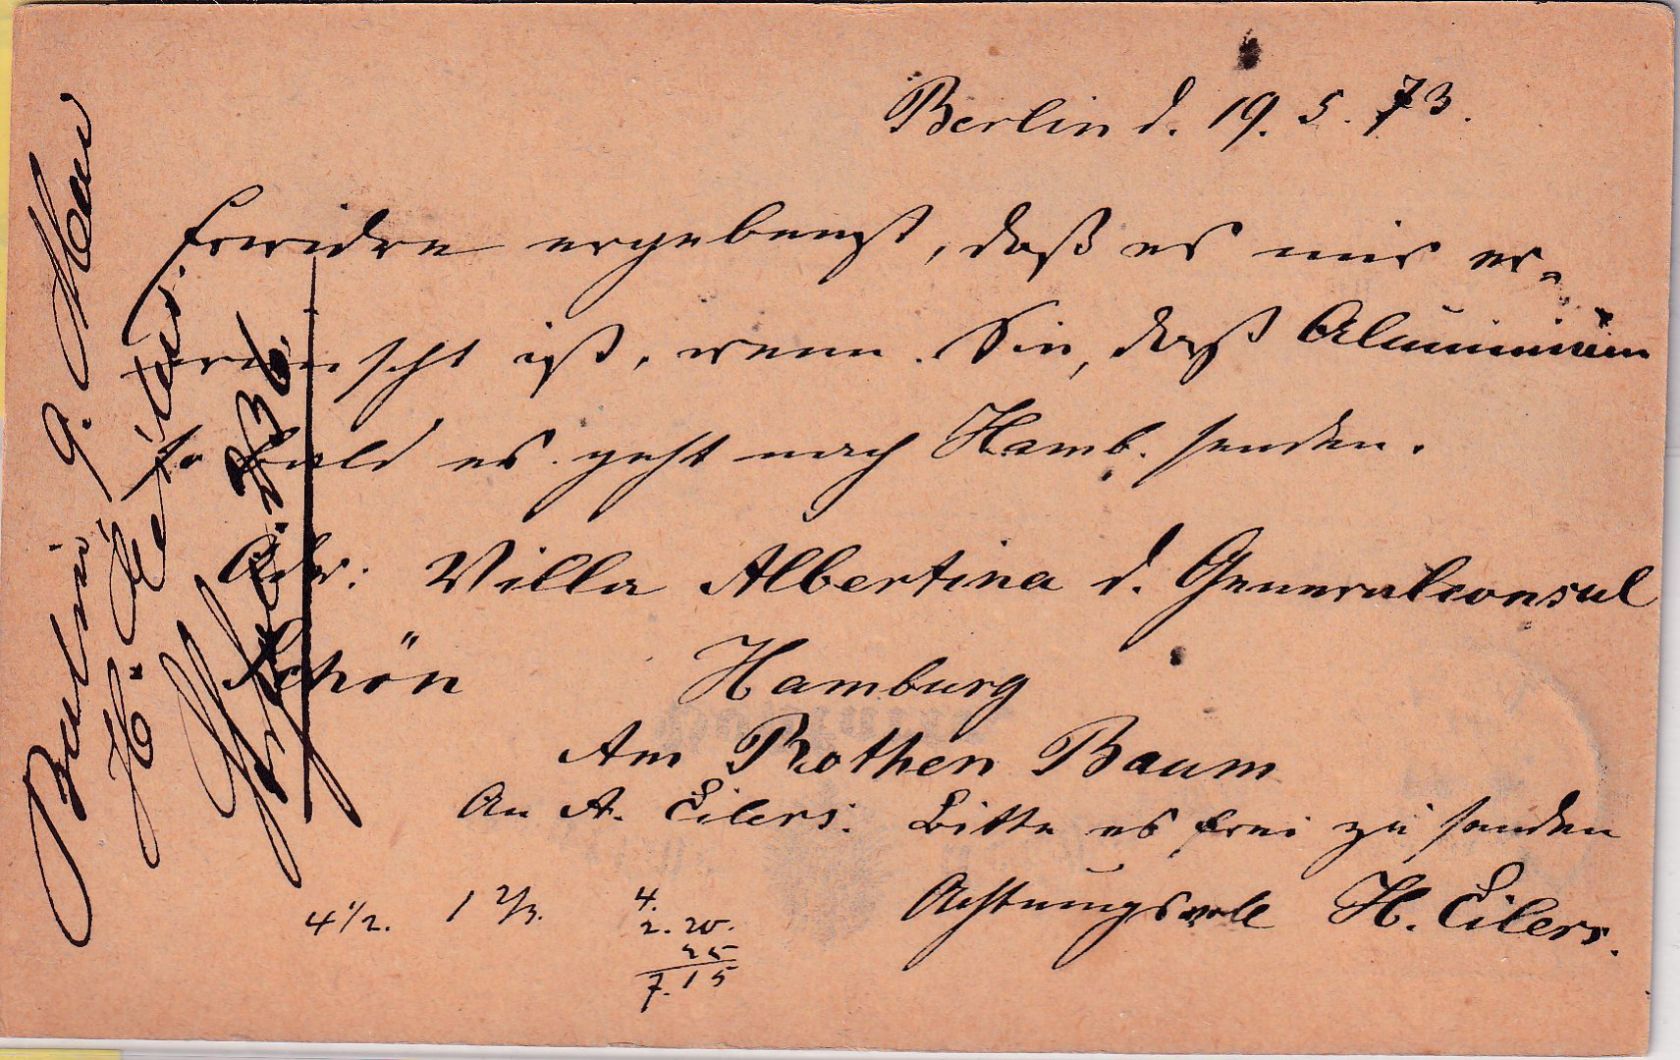 Berlin d. 19. 5. 73.
Erwidre ergebenst, daß es mir er-
wünscht ist, wenn Sie, daß Aluminium
so bald es geht nach Hamb. senden.
Adr: Villa Albertina d. Generalconsul
Schön Hamburg
Am Rothen Baum
An A. Eilers. Bitte es frei zu senden
Achtungsvoll H. Eilers.
4 1/2. 1 2/3. 4.
2.20.
25
7.15
Berlin 9. Mai
H. Eilers.
236.